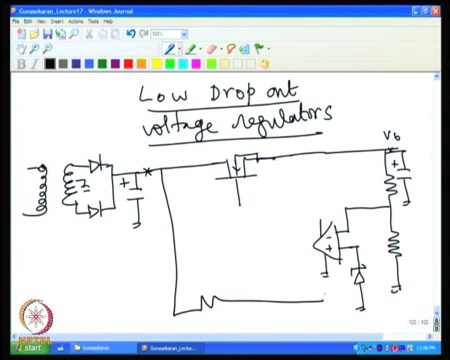 Gunasekaran_Lecture17 - Windows Journal
File Edit View Insert Actions Tools Help
100%
B I
Low Drop out
voltage regulators
Vo
+
+
-
+
100 / 100
NPTEL
start
Gunasekaran
Gunasekaran_Lectu...